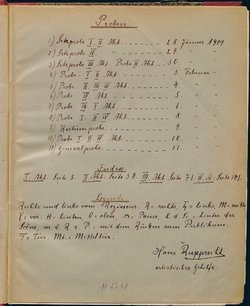 Proben
1) Setzprobe I. II. Akt. 28. Jänner 1909
2) Setzprobe II. 29.
3) Setzprobe III. Akt. Probe II. Akt. 30.
4) Probe I. II Akt 3. Februar
5) Probe II III IV Akt 4.
6) Probe IV Akt. 5.
7) Probe I II Akt. 6.
8) Probe III IV Akt. 8.
9) Kostümprobe 9.
10) Probe I II III IV Akt. 10.
11) Generalprobe 11.
I. Akt. Seite 5. II. Akt. Seite 38. III. Akt. Seite 71. IV. A. Seite
Rechts und links vom Regisseur. R = rechts, L = links, M = mitte
V = vor H = hinten O = oben
Scene, m. d. R. z. P. = mit dem Rücken zum Publikum.
T = Tür Mt = Mitteltür.
Hans Rupprecht